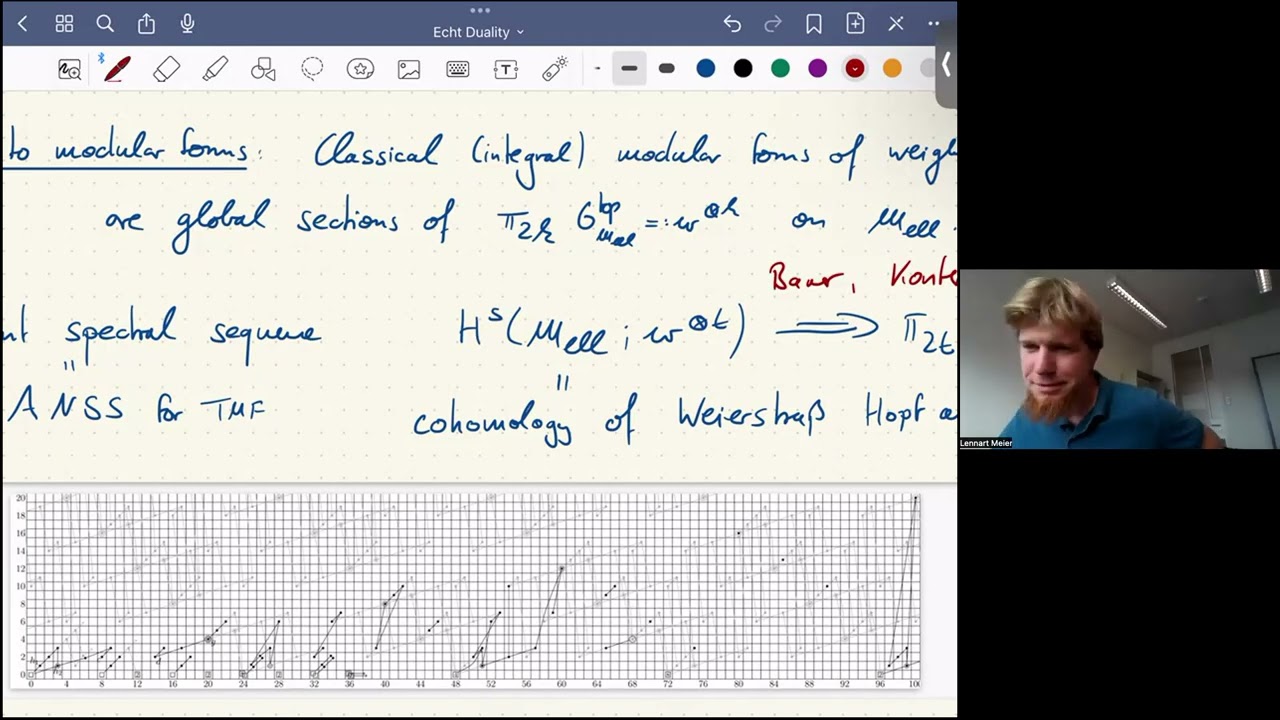 Echt Duality
to modular forms: Classical (integral) modular forms of weigh
are global sections of π_{2k} O^{top}_{Mell} =: ω^{⊗k} on Mell.
Bauer, Konte
nt spectral sequence H^s(Mell; ω^{⊗t}) ⟹ π_{2t
|| ||
ANSS for TMF cohomology of Weierstraß Hopf a
20
18
16
14
12
10
8
6
4
2
0
0 4 8 12 16 20 24 28 32 36 40 44 48 52 56 60 64 68 72 76 80 84 88 92 96 100
Lennart Meier